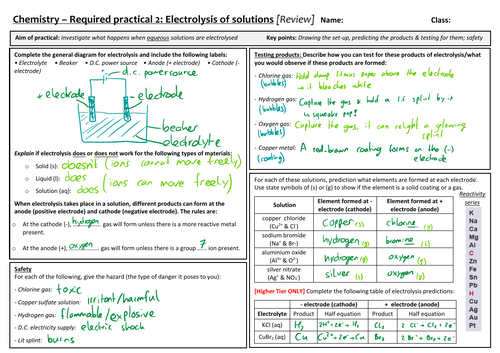 Chemistry – Required practical 2: Electrolysis of solutions [Review] Name: Class:
Aim of practical: Investigate what happens when aqueous solutions are electrolysed
Key points: Drawing the set-up, predicting the products & testing for them; safety
Complete the general diagram for electrolysis and include the following labels:
• Electrolyte • Beaker • D.C. power source • Anode (+ electrode) • Cathode (- electrode)
d.c. power source
+ electrode
- electrode
beaker
electrolyte
Explain if electrolysis does or does not work for the following types of materials:
o Solid (s): doesn't (ions cannot move freely)
o Liquid (l): does
o Solution (aq): does (ions can move freely)
When electrolysis takes place in a solution, different products can form at the
anode (positive electrode) and cathode (negative electrode). The rules are:
o At the cathode (-), hydrogen gas will form unless there is a more reactive metal
present.
o At the anode (+), oxygen gas will form unless there is a group 7 ion present.
Safety
For each of the following, give the hazard (the type of danger it poses to you):
- Chlorine gas: toxic
- Copper sulfate solution: irritant/harmful
- Hydrogen gas: flammable/explosive
- D.C. electricity supply: electric shock
- Lit splint: burns
Testing products: Describe how you can test for these products of electrolysis/what
you would observe if these products are formed:
- Chlorine gas: Hold damp litmus paper above the electrode
(bubbles) → it bleaches white
- Hydrogen gas: Capture the gas & hold a lit splint by it
(bubbles) → squeaky pop!
- Oxygen gas: Capture the gas, it can relight a glowing
(bubbles) splint
- Copper metal: A red-brown coating forms on the (-)
(coating) electrode
For each of these solutions, prediction what elements are formed at each electrode.
Use state symbols (s) or (g) to show if the element is a solid coating or a gas.
Solution Element formed at - electrode (cathode) Element formed at + electrode (anode)
copper chloride (Cu²⁺ & Cl⁻) copper (s) chlorine (g)
sodium bromide (Na⁺ & Br-) hydrogen (g) bromine (l)
aluminium oxide (Al³⁺ & O²⁻) hydrogen (g) oxygen (g)
silver nitrate (Ag⁺ & NO₃⁻) silver (s) oxygen (g)
Reactivity
series
K
Na
Ca
Mg
Al
C
Zn
Fe
Sn
Pb
H
Cu
Ag
Au
Pt
[Higher Tier ONLY] Complete the following table of electrolysis predictions:
- electrode (cathode) + electrode (anode)
Electrolyte Product Half equation Product Half equation
KCl (aq) H₂ 2H⁺ + 2e⁻ → H₂ Cl₂ 2Cl⁻ → Cl₂ + 2e⁻
CuBr₂ (aq) Cu Cu²⁺ + 2e⁻ → Cu Br₂ 2Br⁻ → Br₂ + 2e⁻